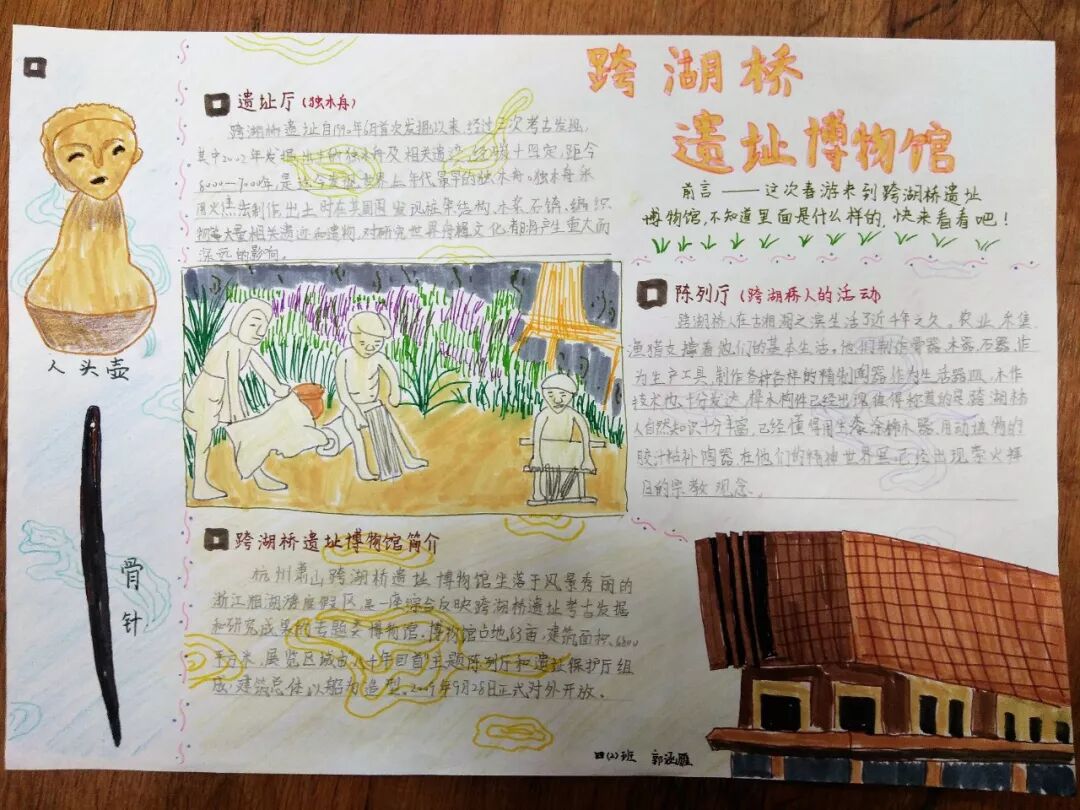 跨湖桥
遗址博物馆
前言——这次春游来到跨湖桥遗址
博物馆,不知道里面是什么样的,快来看看吧!
遗址厅(独木舟)
跨湖桥遗址自1990年6月首次发掘以来,经过三次考古发掘,
其中2002年发掘出土的独木舟及相关遗迹,经测定,距今
8000—7000年,是迄今发现世界上年代最早的独木舟。独木舟采
用火焦法制作,出土时在其周围发现桩架结构、木桨、石锛、编织
物等大量相关遗迹和遗物,对研究世界舟船文化有将产生重大而
深远的影响。
人头壶
骨针
陈列厅(跨湖桥人的活动)
跨湖桥人在古湘湖之滨生活了近千年之久。农业、采集
渔猎支撑着他们的基本生活。他们制作骨器、木器、石器,作
为生产工具,制作各种各样的精制陶器,作为生活器皿,木作
技术也十分发达,榫木构件已经出现。值得称道的是跨湖桥
人自然知识十分丰富,已经懂得用生漆涂饰木器,用动植物的
胶汁粘补陶器,在他们的精神世界里,已经出现崇火拜
日的宗教观念。
跨湖桥遗址博物馆简介
杭州萧山跨湖桥遗址博物馆坐落于风景秀丽的
浙江湘湖渡假区,是一座综合反映跨湖桥遗址考古发掘
和研究成果的专题类博物馆。博物馆占地83亩,建筑面积6800
平方米,展览区域由“八千年回首”主题陈列厅和遗址保护厅组
成,建筑总体以船为造型。2009年9月28日正式对外开放。
四(2)班 郭涵雁